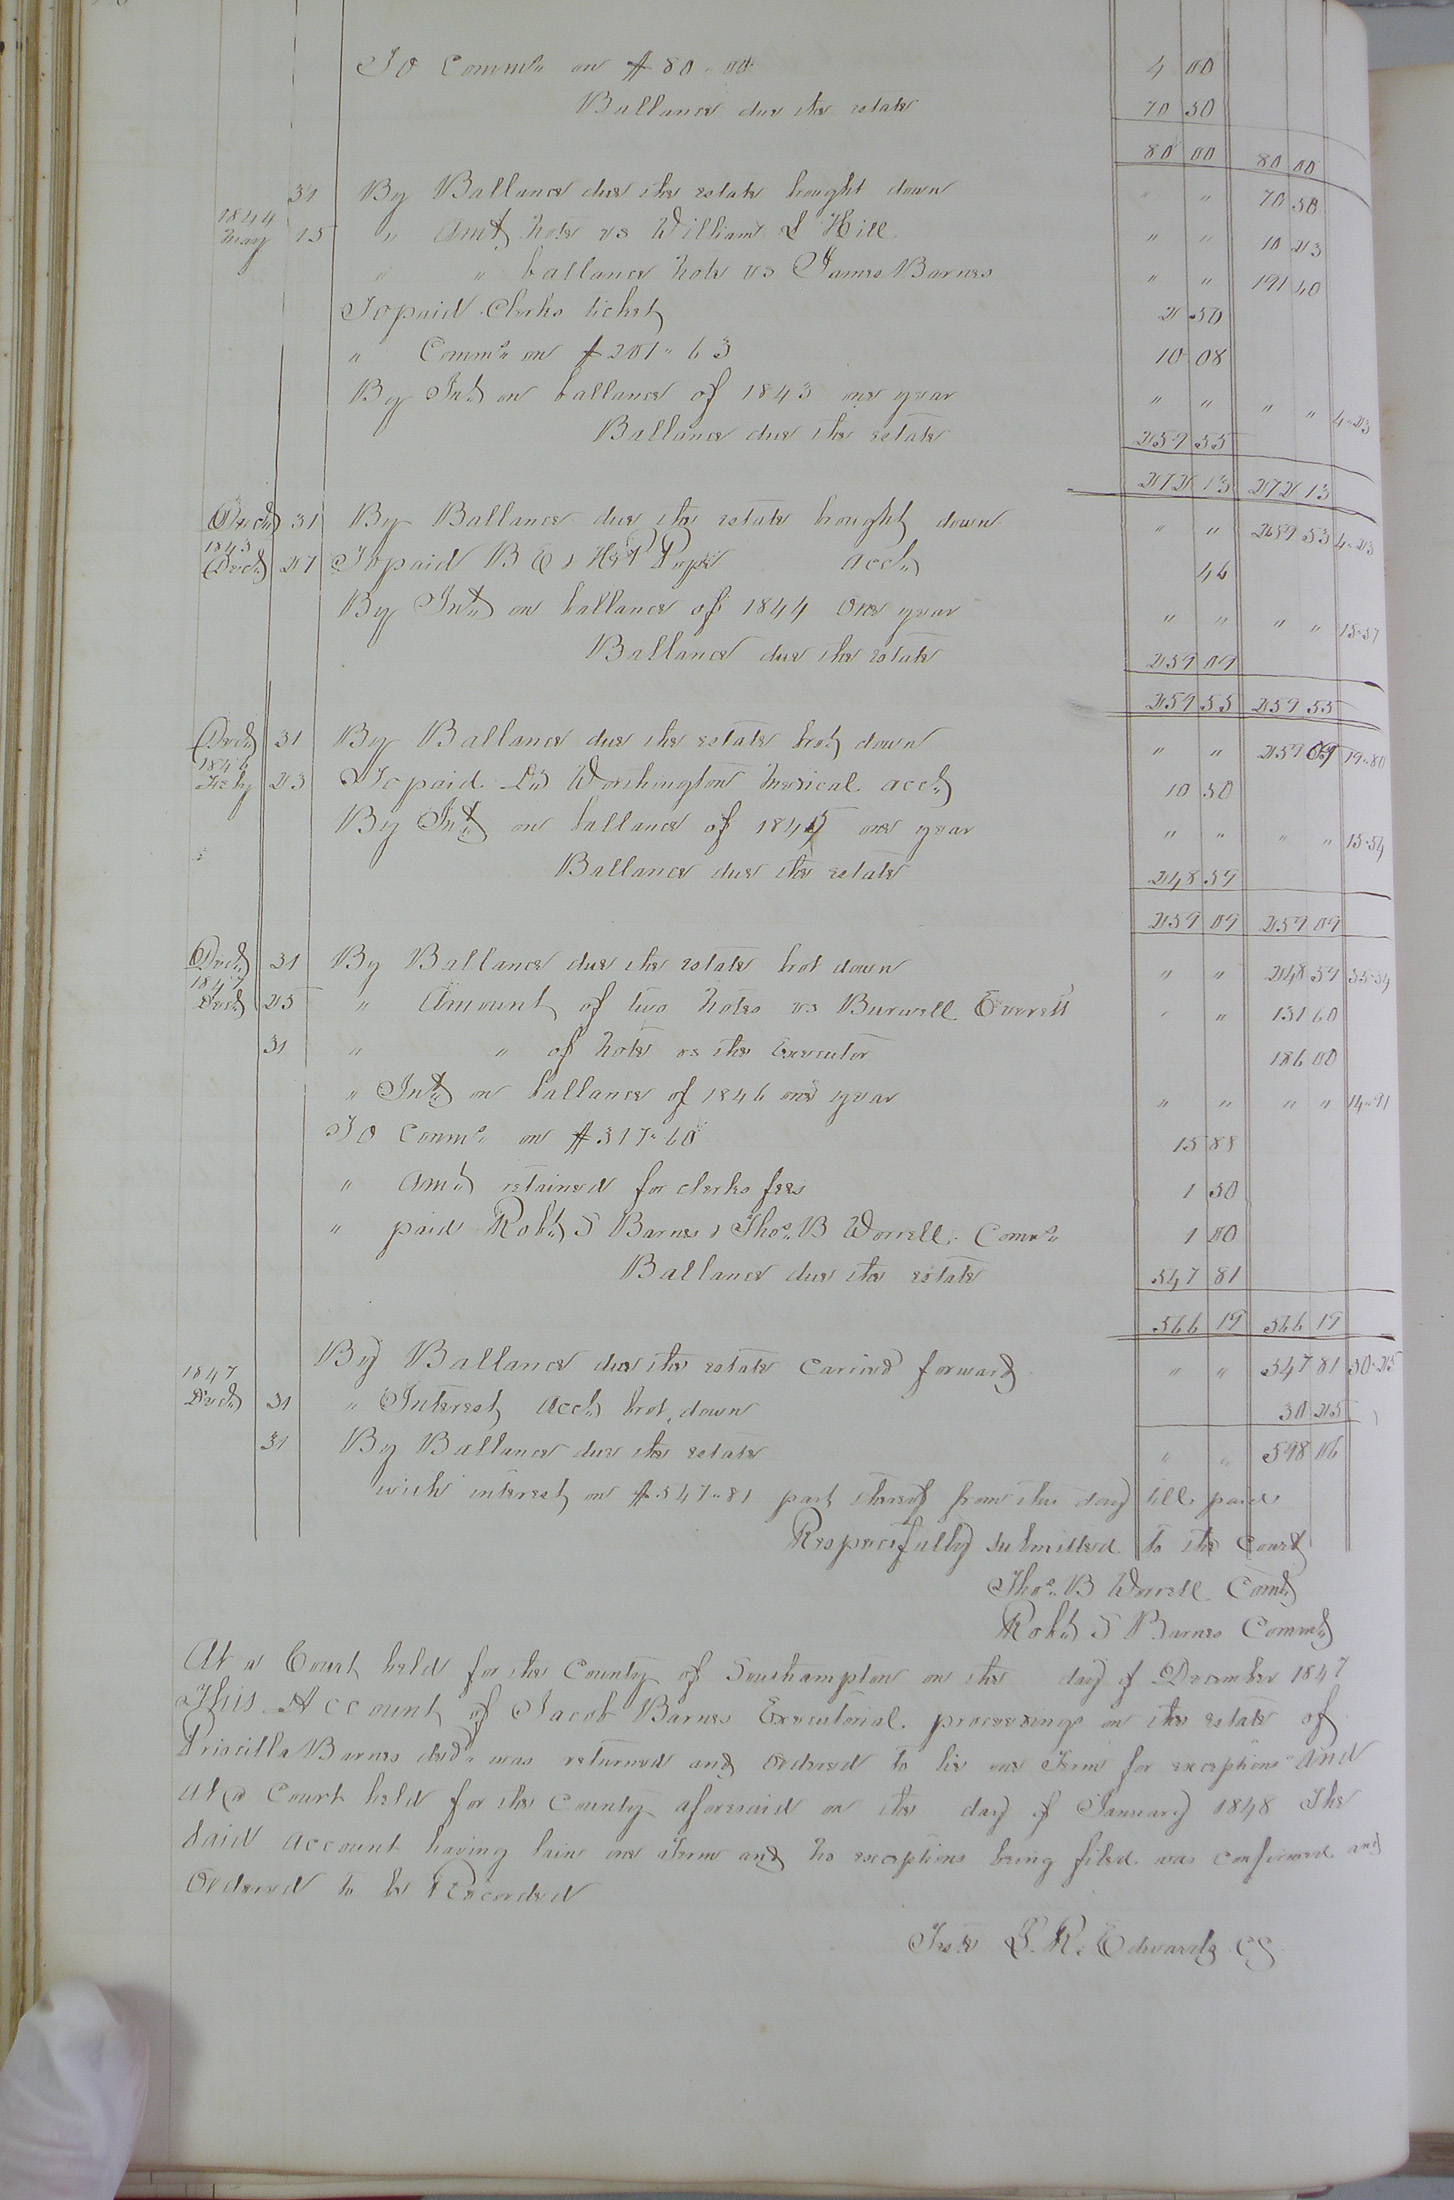 To Comms. on $80.00 4 00
Ballance due the estate 70 50
80 00 80 00
31 By Ballance due the estate brought down " " 70 50
1844
May 15 " Amt. Note vs William L Hill " " 10 23
" " ballance Note vs James Barnes " " 191 40
To paid Clerks ticket 2 50
" Comms. on $201.63 10 08
By Int. on ballance of 1843 one year " " " " 4.23
Ballance due the estate 259 55
272 13 272 13
Decr. 31 By Ballance due the estate brought down " " 259 55 4.23
1845
Decr. 27 To paid B E & H & P Pope acct. 46
By Int. on ballance of 1844 One year " " " " 15.57
Ballance due the estate 259 09
259 55 259 55
Decr. 31 By Ballance due the estate brot. down " " 259 09 19.80
1846
Feby 23 To paid Dr. Worthington Medical acct. 10 50
By Int. on ballance of 1845 one year " " " " 15.54
Ballance due the estate 248 59
259 09 259 09
Decr. 31 By Ballance due the estate brot down " " 248 59 35.34
1847
Decr. 25 " Amount of two Notes vs Burwell Everett " " 131 60
31 " " of Note vs the Executor 186 00
" Int. on ballance of 1846 one year " " " " 14.91
To Comms. on $317.60 15 88
" Amt. retained for clerks fees 1 50
" paid Robt. S Barnes & Thos. B Worrell Comrs. 1 00
Ballance due the estate 547 81
566 19 566 19
By Ballance due the estate carried forward " " 547 81 50.25
1847
Decr. 31 " Interest Acct. brot. down 50 25
31 By Ballance due the estate " " 598 06
with interest on $547.81 part thereof from this day till paid
Respectfully submitted to the Court
Thos. B Worrell Comr.
Robt. S Barnes Commr.
At a Court held for the County of Southampton on the day of December 1847
This Account of Jacob Barnes Executorial proceedings on the estate of
Priscilla Barnes decd. was returned and Ordered to lie one Term for exceptions And
At a Court held for the County aforesaid on the day of January 1848 The
Said Account having lain one Term and No exceptions being filed was confirmed and
Ordered to be Recorded
Teste L. R. Edwards CS